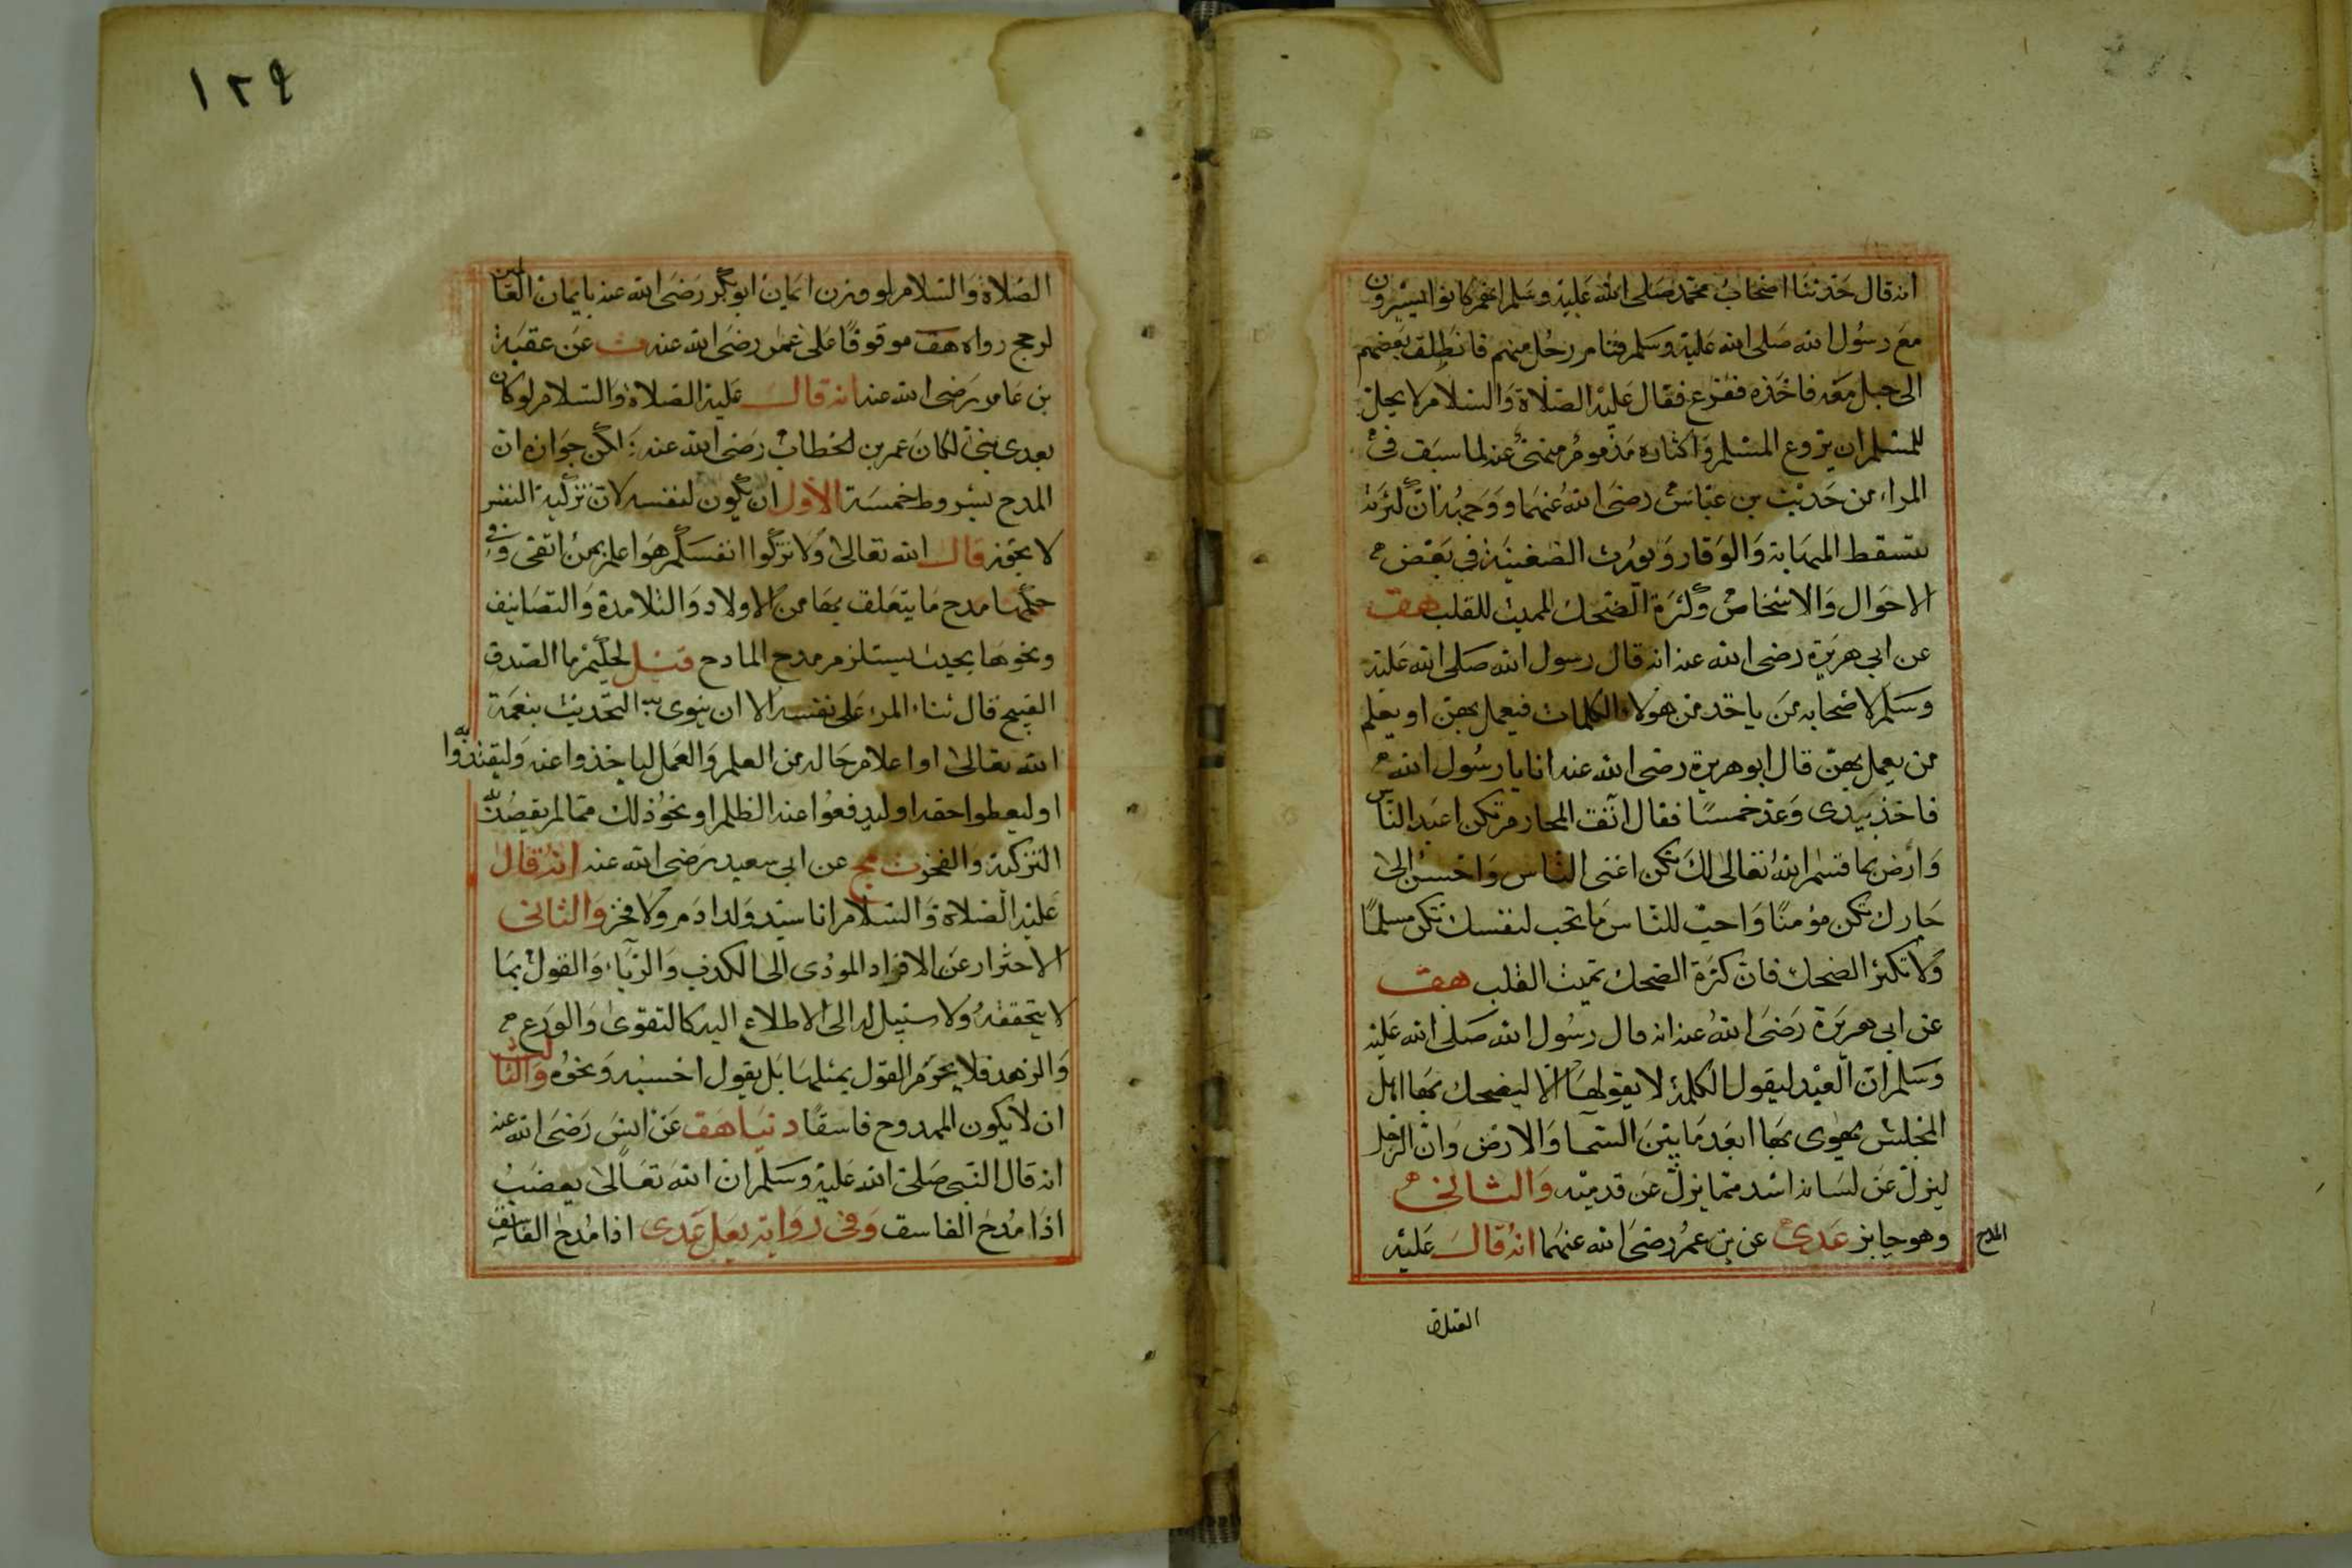 انه قال حدثنا اصحاب محمد صلى الله عليه وسلم انهم كانوا يسيرون
مع رسول الله صلى الله عليه وسلم فنام رجل منهم فانطلق بعضهم
الى حبل معه فاخذه ففزع فقال عليه الصلاة والسلام لا يحل
للمسلم ان يروع المسلم واكثاره مذموم منهى عنه لما سبق فى
المراء من حديث بن عباس رضى الله عنهما ووجهه ان كثرته
تسقط المهابة والوقار ويورث الضغينة فى بعض
الاحوال والاشخاص وكثرة الضحك المميت للقلب هق
عن ابي هريرة رضى الله عنه انه قال رسول الله صلى الله عليه
وسلم لاصحابه من ياخذ من هولاء الكلمات فيعمل بهن او يعلم
من يعمل بهن قال ابو هريرة رضى الله عنه انا يا رسول الله
فاخذ بيدى وعد خمسا فقال اتق المحارم تكن اعبد الناس
وارض بما قسم الله تعالى لك تكن اغنى الناس واحسن الى
جارك تكن مؤمنا واحب للناس ما تحب لنفسك تكن مسلما
ولا تكثر الضحك فان كثرة الضحك تميت القلب هق
عن ابى هريرة رضى الله عنه انه قال رسول الله صلى الله عليه
وسلم ان العبد ليقول الكلمة لا يقولها الا ليضحك بها اهل
المجلس يهوى بها ابعد ما بين السما والارض وان الرجل
ليزل عن لسانه اشد مما يزل عن قدميه والثانى
وهو جايز عدى عن بن عمر رضى الله عنهما انه قال عليه
المدح
الصلاة
١٢٩
الصلاة والسلام لو وزن ايمان ابو بكر رضى الله عنه بايمان العالمين
لرجح رواه هق موقوفا على عمر رضى الله عنه ت عن عقبة
بن عامر رضى الله عنه انه قال عليه الصلاة والسلام لو كان
بعدى نبى لكان عمر بن لخطاب رضى الله عنه لكن جوازه ان
المدح بشروط خمسة الاول ان يكون لنفسه لان تزكية النفس
لا يجوز قال الله تعالى ولا تزكوا انفسكم هو اعلم بمن اتقى وفى
حكمها مدح ما يتعلق بها من الاولاد والتلامذة والتصانيف
ونحوها بحيث يستلزم مدح المادح قيل لحكيم ما الصدق
القبيح قال ثناء المرء على نفسه الا ان ينوى به التحديث بنعمة
الله تعالى او اعلام حاله من العلم والعمل لياخذوا عنه وليقتدوا به
او ليعطوا حقه او ليدفعوا عنه الظلم او نحو ذلك مما لم يقصد به
التزكية والفخر ت مج عن ابى سعيد رضى الله عنه انه قال
عليه الصلاة والسلام انا سيد ولد ادم ولا فخر والثانى
الاحتراز عن الافراد المودى الى الكذب والريا والقول بما
لا يتحققه ولا سبيل له الى الاطلاع اليه كالتقوى والورع
والزهد فلا يجزم القول بمثلها بل يقول احسبه ونحوه والثالث
ان لا يكون الممدوح فاسقا دنيا هق عن انس رضى الله عنه
انه قال النبى صلى الله عليه وسلم ان الله تعالى يغضب
اذا مدح الفاسق وفى رواية يعلى عدى اذا مدح الفاسق